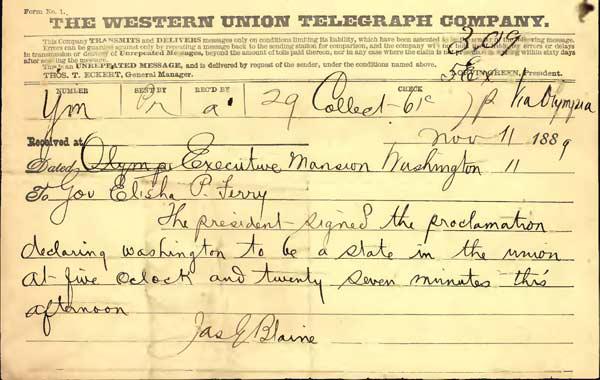 Form No. 1.
THE WESTERN UNION TELEGRAPH COMPANY.
This Company TRANSMITS and DELIVERS messages only on conditions limiting its liability, which have been assented to by the sender of the following message.
Errors can be guarded against only by repeating a message back to the sending station for comparison, and the company will not hold itself liable for errors or delays
in transmission or delivery of Unrepeated Messages, beyond the amount of tolls paid thereon, nor in any case where the claim is not presented in writing within sixty days
after sending the message.
This is an UNREPEATED MESSAGE, and is delivered by request of the sender, under the conditions named above.
THOS. T. ECKERT, General Manager. NORVIN GREEN, President.
NUMBER SENT BY REC'D BY CHECK
29 Collect 61c Via Olympia
Received at Nov 11 1889
Dated Executive Mansion Washington 11
To Gov Elisha P. Ferry
The president signed the proclamation
declaring washington to be a state in the union
at five oclock and twenty seven minutes this
afternoon
Jas G Blaine